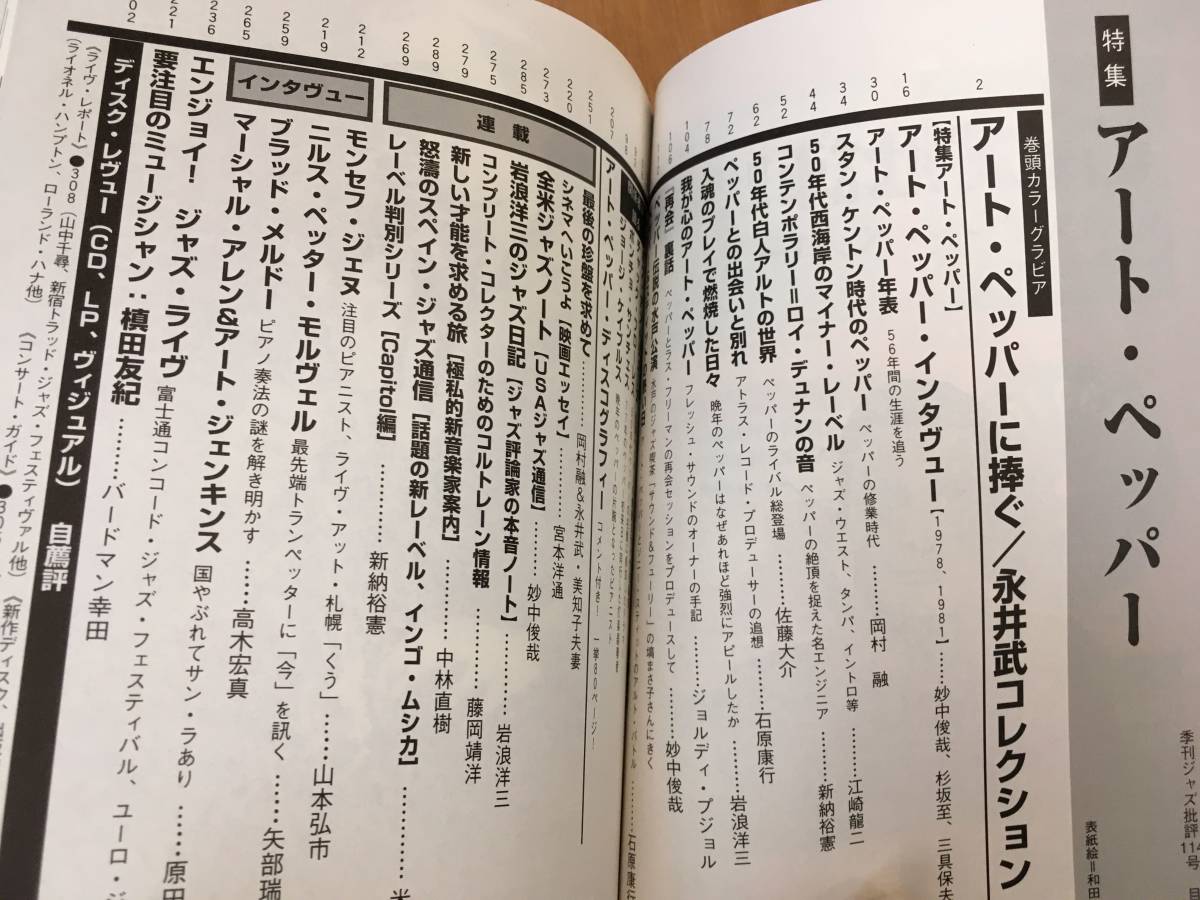 特集
アート・ペッパー
季刊ジャズ批評114号
表紙絵＝和田
巻頭カラーグラビア
2 アート・ペッパーに捧ぐ／永井武コレクション
[特集アート・ペッパー]
16 アート・ペッパー・インタヴュー【1978、1981】………妙中俊哉、杉坂至、三具保夫
30 アート・ペッパー年表 56年間の生涯を追う
34 スタン・ケントン時代のペッパー ペッパーの修業時代………岡村 融
44 50年代西海岸のマイナー・レーベル ジャズ・ウエスト、タンパ、イントロ等………江崎龍二
52 コンテンポラリー＝ロイ・デュナンの音 ペッパーの絶頂を捉えた名エンジニア………新納裕憲
62 50年代白人アルトの世界 ペッパーのライバル総登場………佐藤大介
72 ペッパーとの出会いと別れ アトラス・レコード・プロデューサーの追想………石原康行
78 入魂のプレイで燃焼した日々 晩年のペッパーはなぜあれほど強烈にアピールしたか………岩浪洋三
104 我が心のアート・ペッパー フレッシュ・サウンドのオーナーの手記………ジョルディ・プジョル
106 「再会」裏話 ペッパーとラス・フリーマンの再会セッションをプロデュースして………妙中俊哉
伝説の水戸公演 水戸のジャズ喫茶「サウンド&フューリー」の塙まさ子さんにきく
………石原康行
ジョージ・ケイブルス
207 アート・ペッパー・ディスコグラフィー コメント付き！ 一挙80ページ！
連載
251 最後の珍盤を求めて………岡村融&永井武・美知子夫妻
220 シネマへいこうよ【映画エッセイ】………宮本洋通
273 全米ジャズノート【USAジャズ通信】………妙中俊哉
285 岩浪洋三のジャズ日記【ジャズ評論家の本音ノート】………岩浪洋三
275 コンプリート・コレクターのためのコルトレーン情報………藤岡靖洋
279 新しい才能を求める旅【極私的新音楽家案内】………中林直樹
289 怒濤のスペイン・ジャズ通信【話題の新レーベル、インゴ・ムシカ】………米
269 レーベル判別シリーズ【Capitol編】………新納裕憲
インタヴュー
212 モンセフ・ジェヌ 注目のピアニスト、ライヴ・アット・札幌「くう」………山本弘市
219 ニルス・ペッター・モルヴェル 最先端トランペッターに「今」を訊く………矢部瑞
259 ブラッド・メルドー ピアノ奏法の謎を解き明かす………高木宏真
265 マーシャル・アレン&アート・ジェンキンス 国やぶれてサン・ラあり………原田
236 エンジョイ！ ジャズ・ライヴ 富士通コンコード・ジャズ・フェスティバル、ユーロ・ジ
221 要注目のミュージシャン：槙田友紀………バードマン幸田
02 ディスク・レヴュー（CD、LP、ヴィジュアル） 自薦評
《ライヴ・レポート》●308（山中千尋、新宿トラッド・ジャズ・フェスティヴァル他）《コンサート・ガイド》●305
（ライオネル・ハンプトン、ローランド・ハナ他）《新作ディスク、